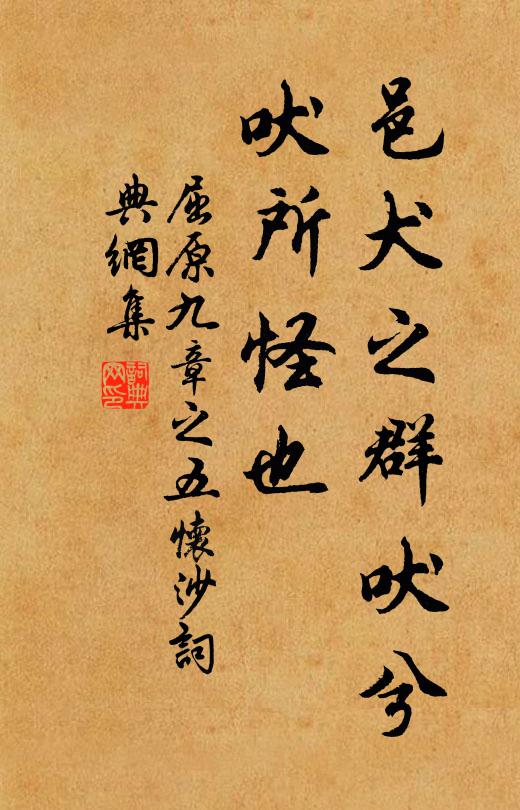 邑犬之群吠兮
吠所怪也
屈原九章之五懷沙詞
典網集
詞典
网印